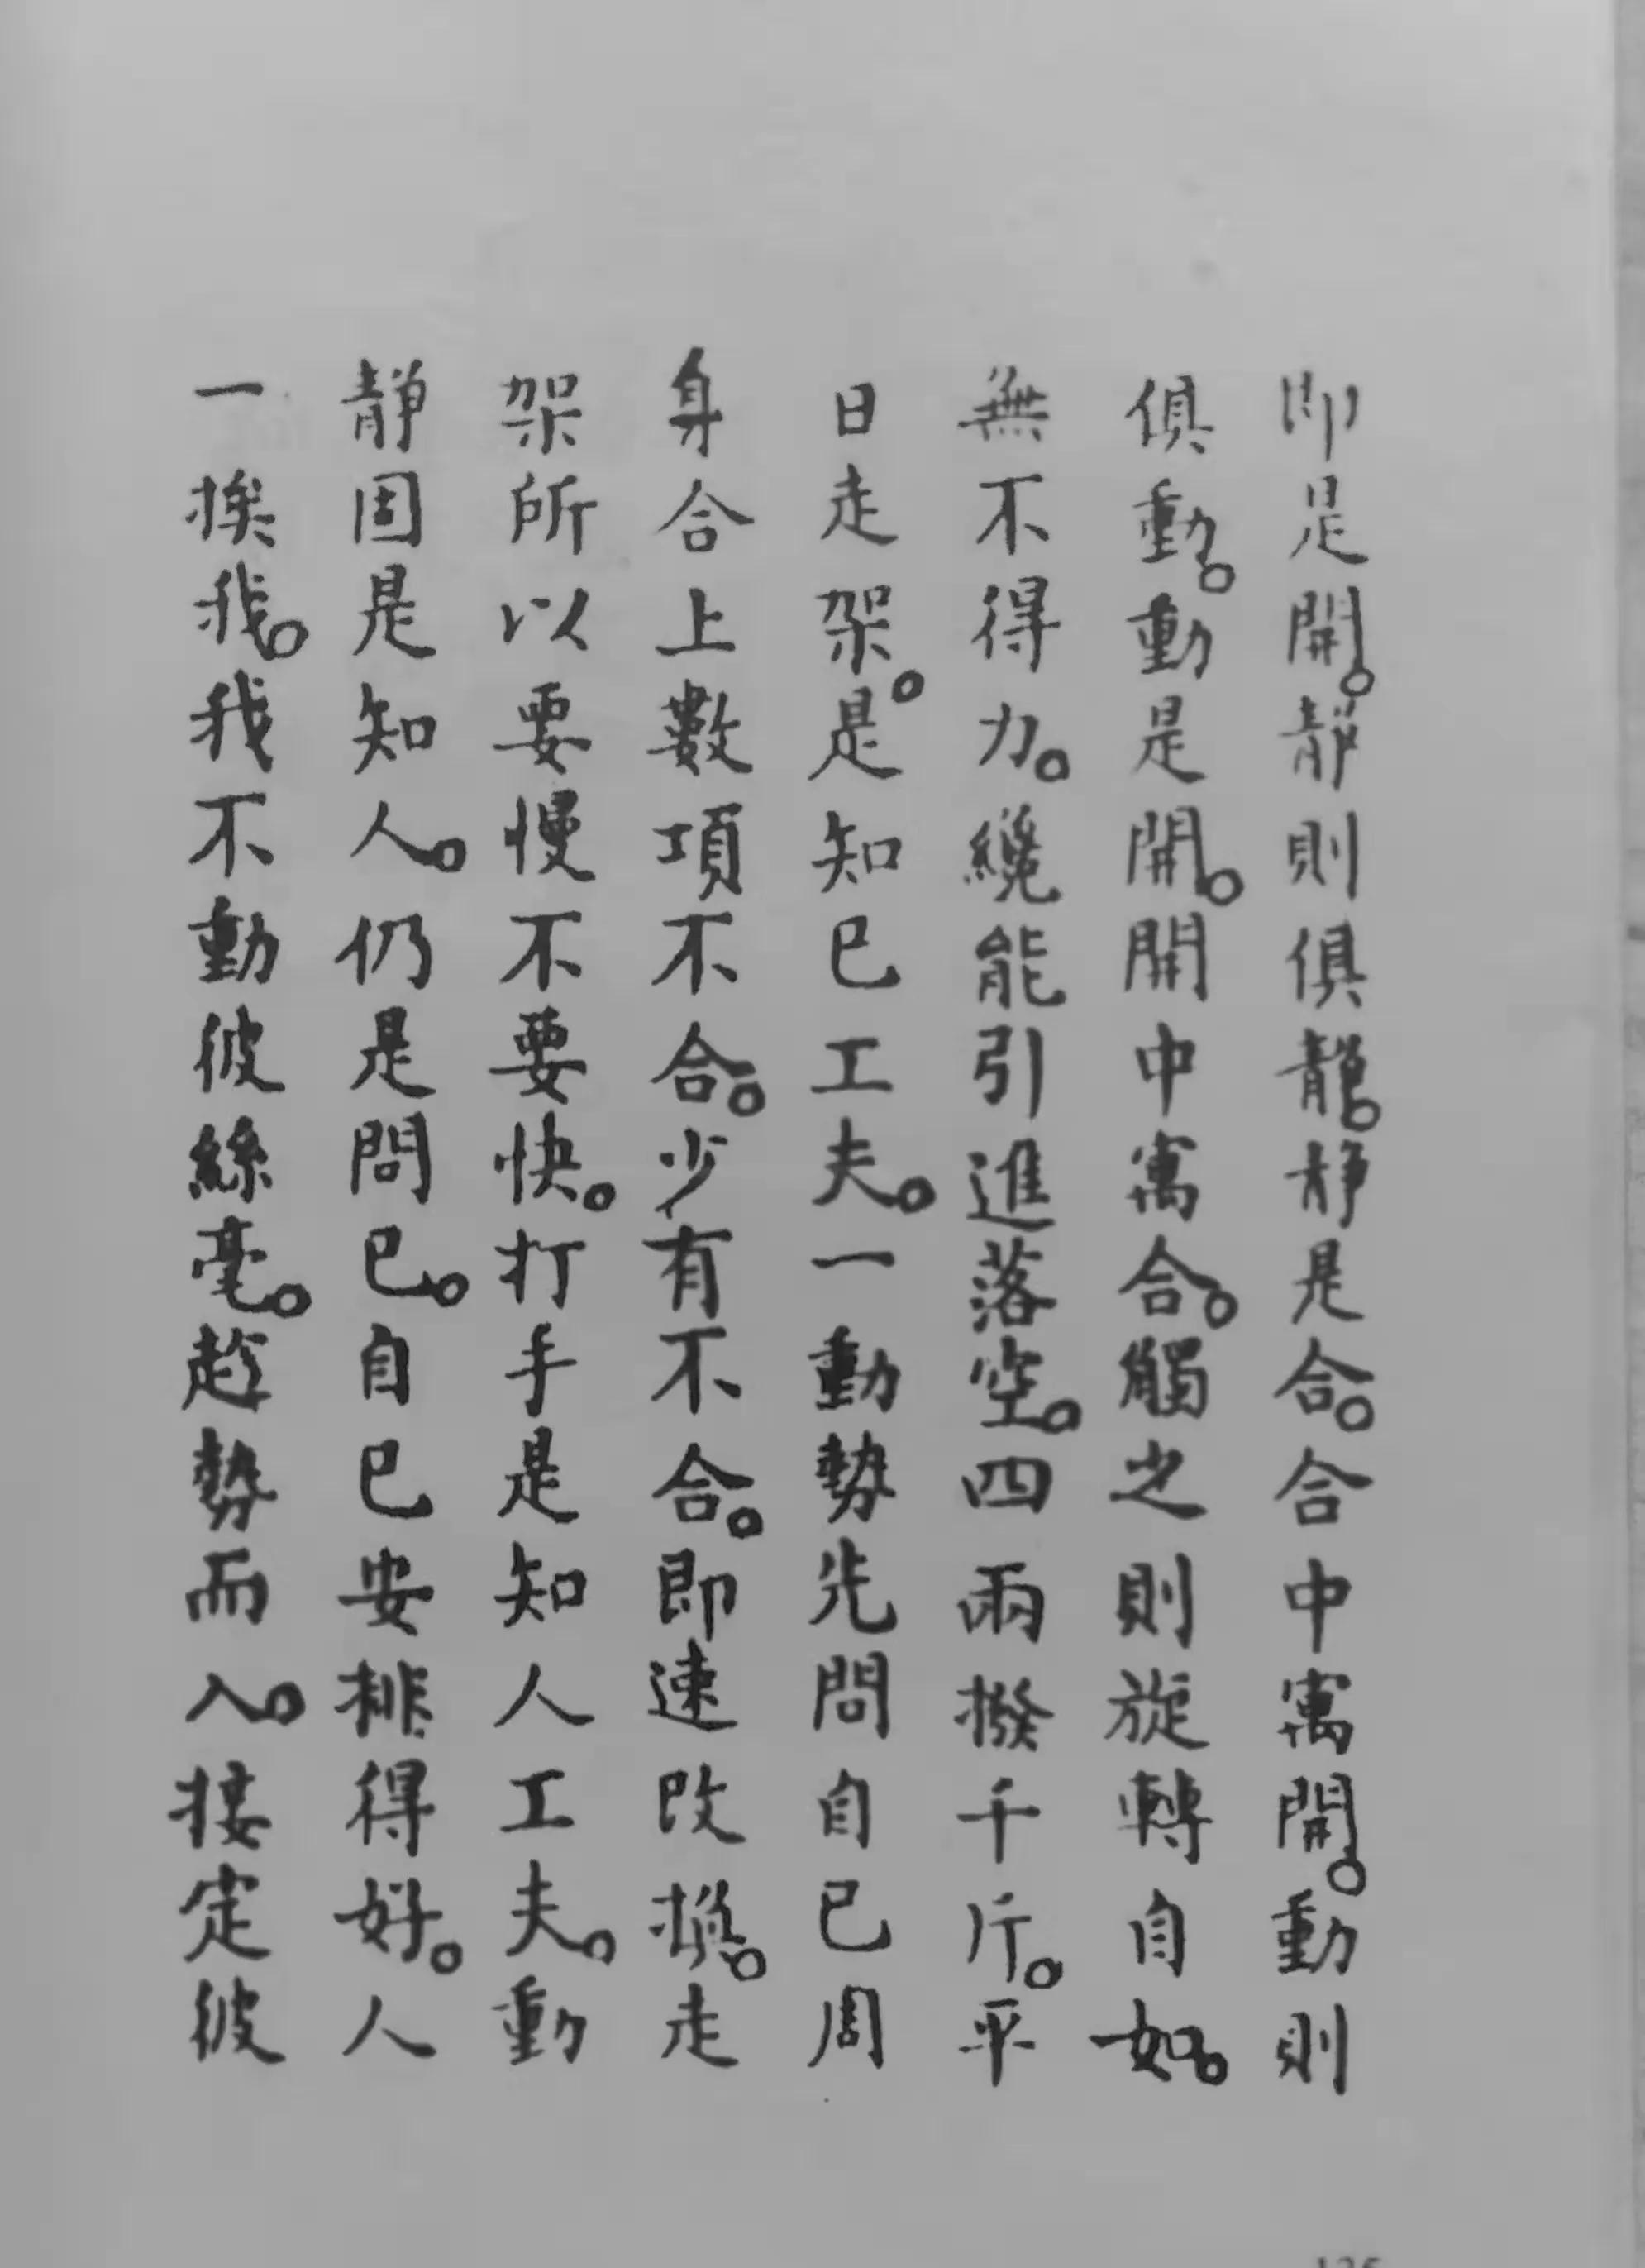 即是開。靜則俱靜。静是合。合中寓開。動則
俱動。動是開。開中寓合。觸之則旋轉自如。
無不得力。纔能引進落空。四兩撥千斤。平
日走架。是知己工夫。一動勢先問自己周
身合上數項不合。少有不合。即速改換。走
架所以要慢不要快。打手是知人工夫。動
靜固是知人。仍是問己。自己安排得好。人
一挨我。我不動彼絲毫。趁勢而入。接定彼